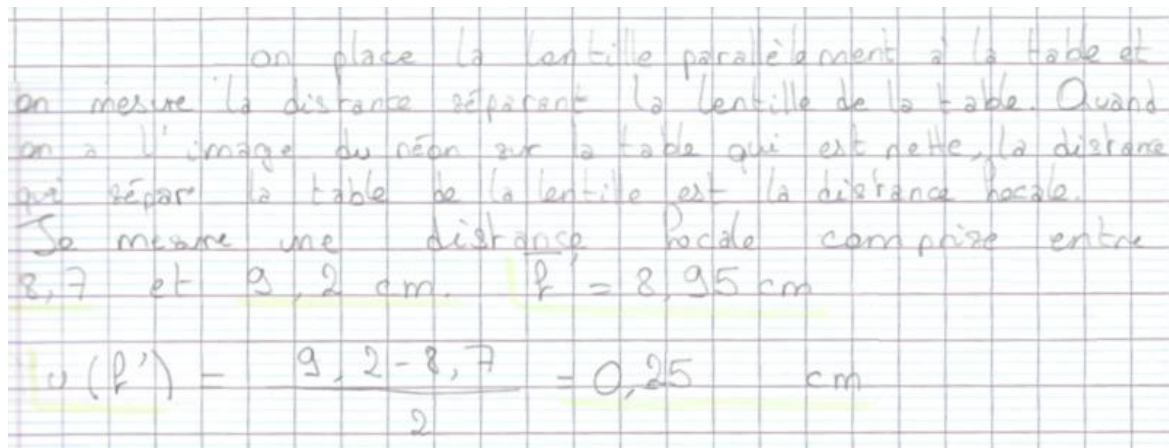 on place la lentille parallèlement à la table et
on mesure la distance séparant la lentille de la table. Quand
on a l'image du néon sur la table qui est nette, la distance
qui sépare la table de la lentille est la distance focale.
Je mesure une distance focale comprise entre
8,7 et 9,2 cm. f' = 8,95 cm
u(f') = (9,2-8,7)/2 = 0,25 cm